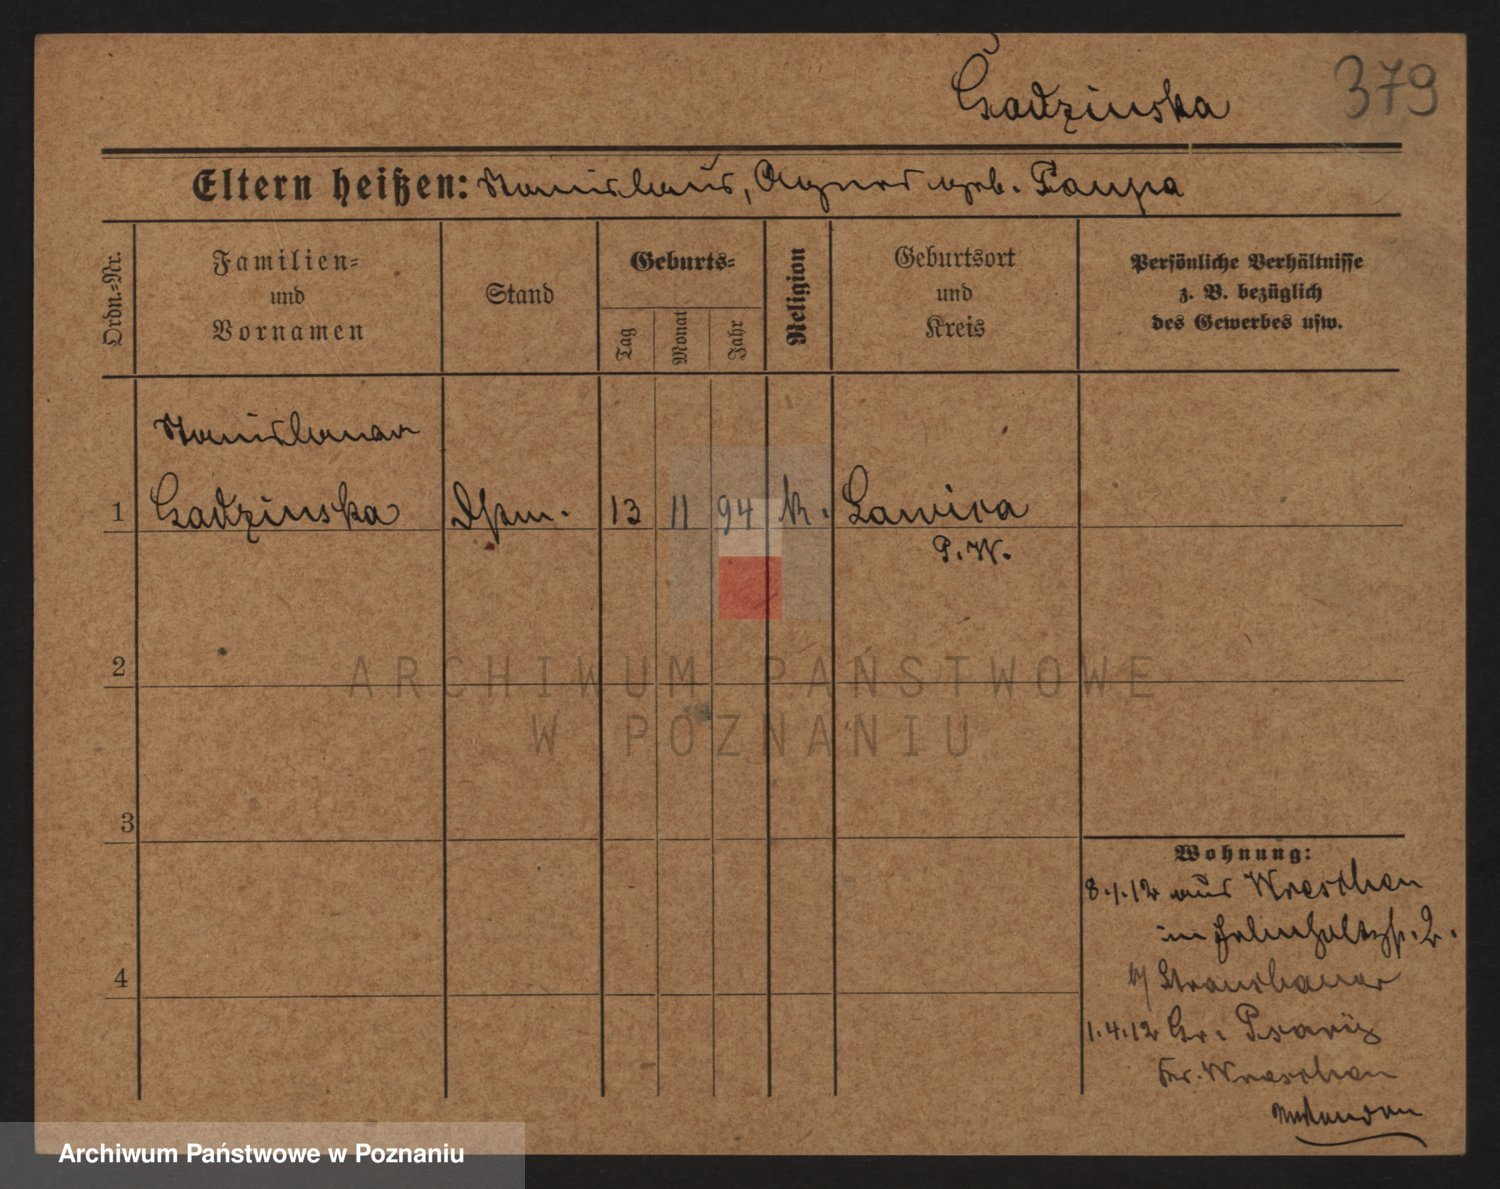 Gadzinska 379
Eltern heißen: Stanislaus, Agnes geb. Paupa
Ordn.=Nr.
Familien=
und
Vornamen
Stand
Geburts=
Tag
Monat
Jahr
Religion
Geburtsort
und
Kreis
Persönliche Verhältnisse
z. B. bezüglich
des Gewerbes usw.
Stanislawa
1 Gadzinska Dstm. 13 11 94 k. Lawica
P. W.
2
ARCHIWUM PAŃSTWOWE
W POZNANIU
3
Wohnung:
8.1.12 aus Wreschen
in Helmholtzstr. 2.
b/
4
1.4.12 Gr. Psariz
Kr. Wreschen
Archiwum Państwowe w Poznaniu